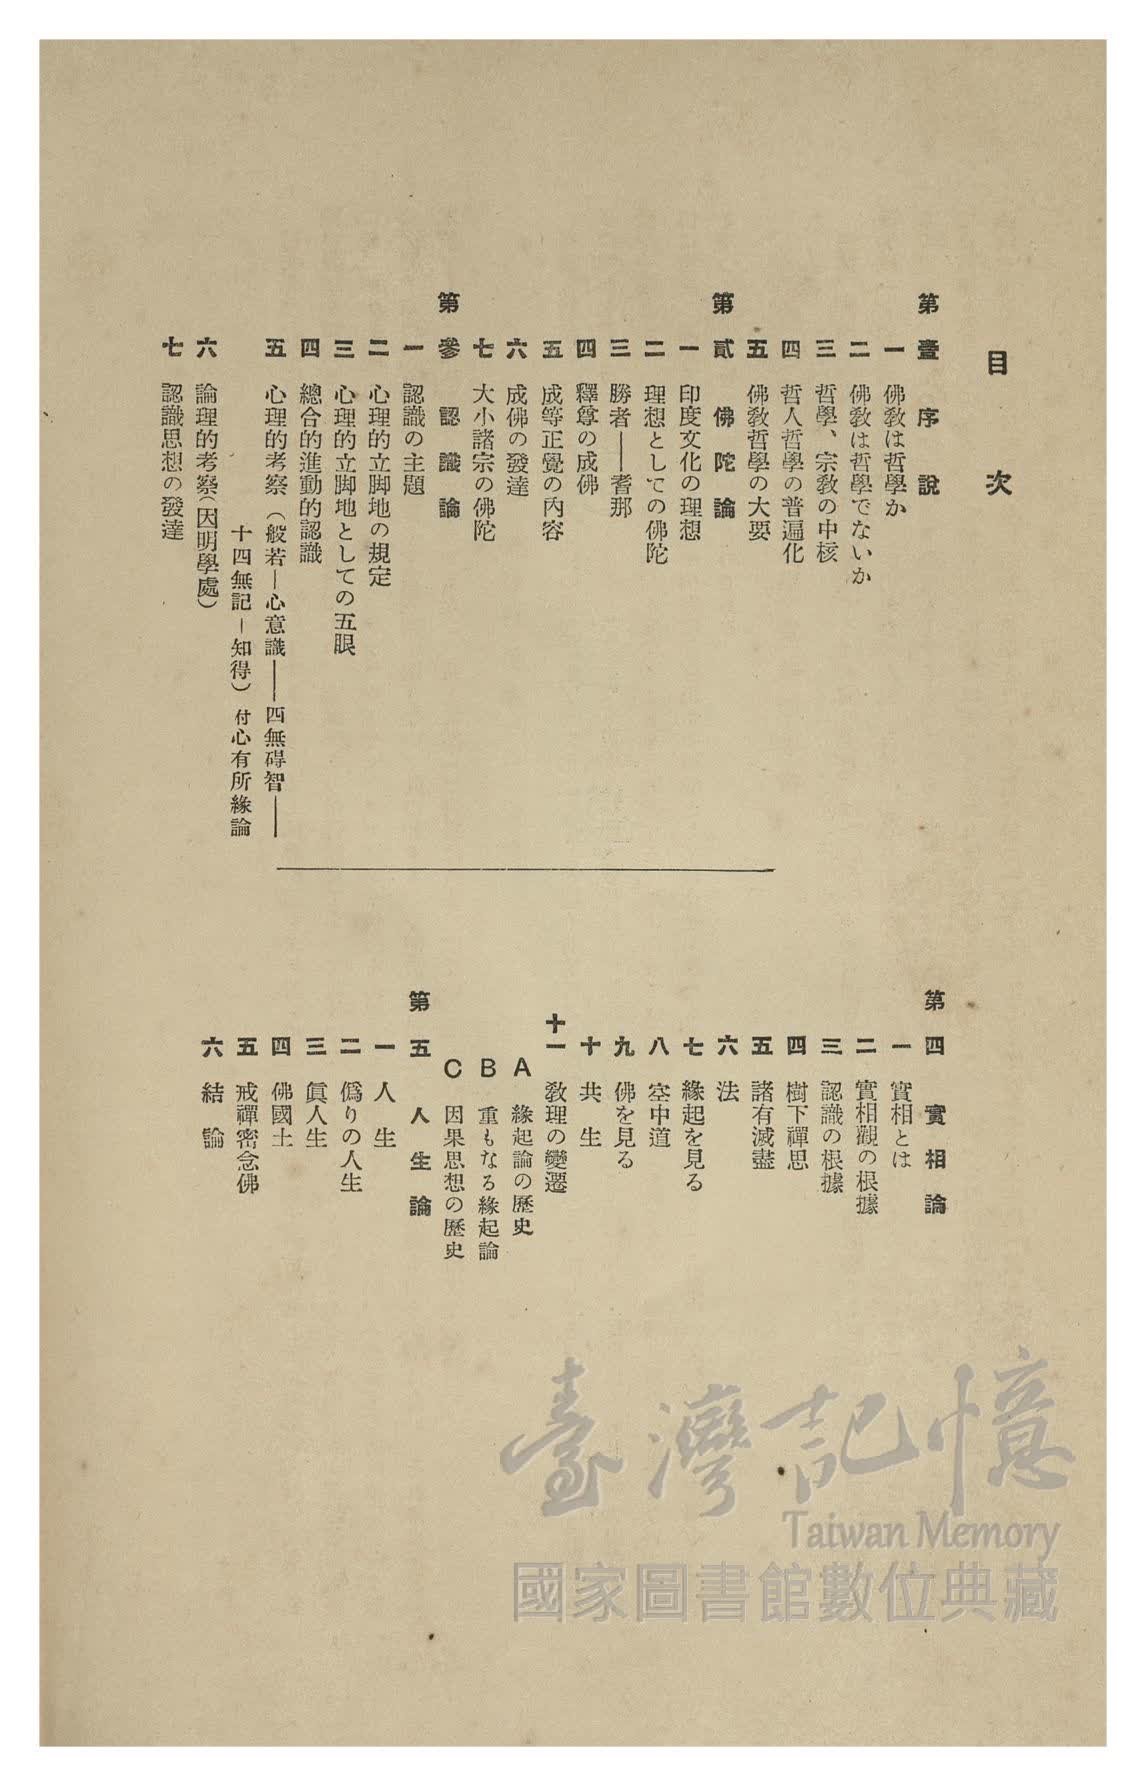 目次
第壹 序說
一 佛敎は哲學か
二 佛敎は哲學でないか
三 哲學、宗敎の中核
四 哲人哲學の普遍化
五 佛敎哲學の大要
第貳 佛陀論
一 印度文化の理想
二 理想としての佛陀
三 勝者――耆那
四 釋尊の成佛
五 成等正覺の內容
六 成佛の發達
七 大小諸宗の佛陀
第參 認識論
一 認識の主題
二 心理的立脚地の規定
三 心理的立脚地としての五眼
四 總合的進動的認識
五 心理的考察（般若―心意識――四無碍智――
十四無記―知得）付心有所緣論
六 論理的考察（因明學處）
七 認識思想の發達
第四 實相論
一 實相とは
二 實相觀の根據
三 認識の根據
四 樹下禪思
五 諸有滅盡
六 法
七 緣起を見る
八 空中道
九 佛を見る
十 共生
十一 敎理の變遷
A 緣起論の歷史
B 重もなる緣起論
C 因果思想の歷史
第五 人生論
一 人生
二 僞りの人生
三 眞人生
四 佛國土
五 戒禪密念佛
六 結論
臺灣記憶
Taiwan Memory
國家圖書館數位典藏